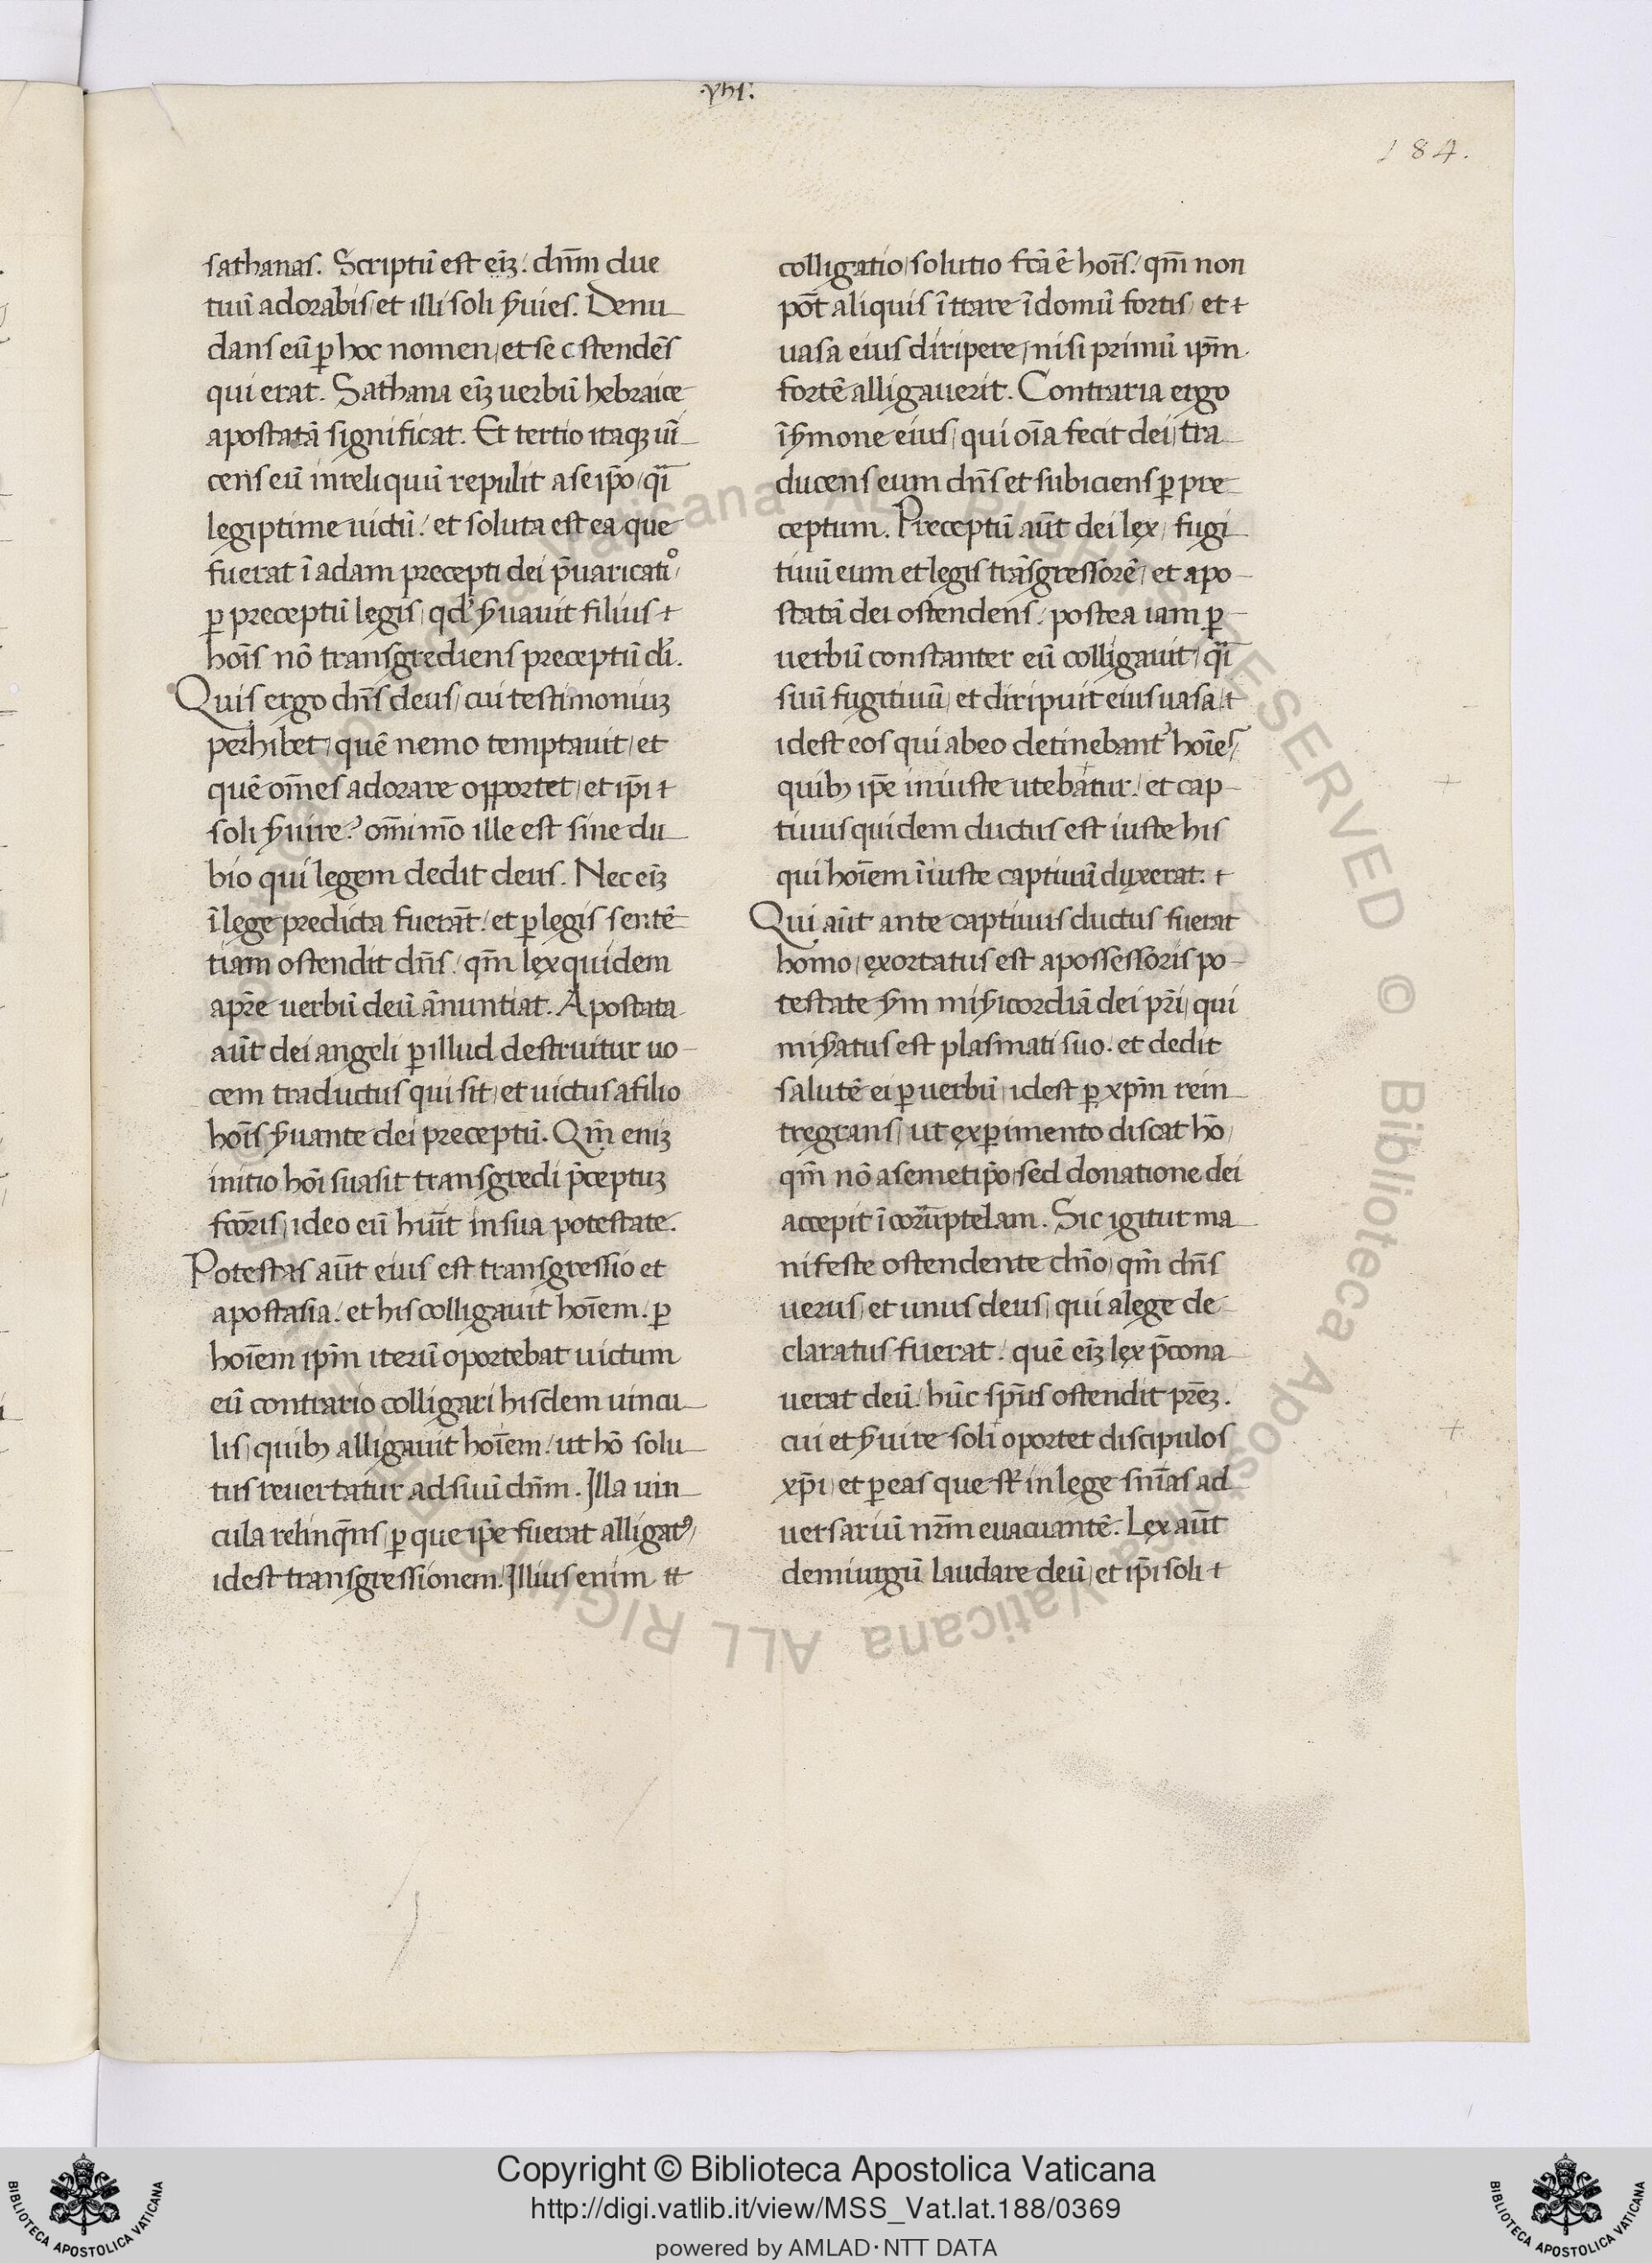 .yhs.
184.
sathanas. Scriptũ est eĩʒ. dñm due
tuũ adorabis, et illi soli ẜuies. Denu
dans eũ ꝑ hoc nomen, et se ostendẽs
qui erat. Sathana eĩʒ uerbũ hebraice
apostatã significat. Et tertio itaqʒ uĩ
cens eũ in reliquũ repulit a se ip̃o, q̃i
legiptime uictũ. et soluta est ea que
fuerat ĩ adam precepti dei p̃uaricatiͦ
ꝑ preceptũ legis, qđ ẜuauit filius +
hoĩs nõ transgrediens preceptũ dĩ.
Quis ergo dñs deus, cui testimoniuʒ
perhibet, quẽ nemo temptauit, et
quẽ om̃es adorare opportet, et ip̃i +
soli ẜuire? om̃imo ille est sine du
bio qui legem dedit deus. Nec eĩʒ
ĩ lege predicta fuerãt. et ꝑ legis sentẽ
tiam ostendit dñs. qm̃ lex quidem
a pr̃e uerbũ deũ ãnuntiat. Apostata
aũt dei angeli ꝑ illud destruitur uo
cem traductus qui sit, et uictus a filio
hoĩs ẜuante dei preceptũ. Qm̃ eniʒ
initio hoĩ suasit transgredi p̃ceptuʒ
fcõris, ideo eũ hũit in sua potestate.
Potestas aũt eius est transgressio et
apostasia. et his colligauit hoĩem. ꝑ
hoĩem ip̃m iterũ oportebat uictum
eũ contrario colligari hisdem uincu
lis, quibꝫ alligauit hoĩem. ut hõ solu
tus reuertatur ad suũ dñm. Illa uin
cula relinq̃ns, ꝑ que ip̃e fuerat alligatꝰ,
idest transgressionem. Illius enim
colligatio, solutio fcã ẽ hoĩs. qm̃ non
põt aliquis ĩttare ĩ domũ fortis, et +
uasa eius diripere, nisi primũ ip̃m
fortẽ alligauerit. Contraria ergo
ĩ ẜmone eius, qui oĩa fecit dei, tra
ducens eum dñs et subiciens ꝑ pre
ceptum. Preceptũ aũt dei lex, fugi
tiuũ eum et legis trãsgressorẽ, et apo
statã dei ostendens. postea iam ꝑ
uerbũ constanter eũ colligauit, q̃i
suũ fugitiuũ, et diripuit eius uasa, +
idest eos qui ab eo detinebant᷑ hoĩes,
quibꝫ ip̃e iniuste utebatur. et cap
tiuus quidem ductus est iuste his
qui hoĩem ĩiuste captiuũ duxerat. +
Qui aũt ante captiuus ductus fuerat
homo, exortatus est a possessoris po
testate ẜm miẜicordiã dei pr̃i, qui
miẜatus est plasmati suo. et dedit
salutẽ ei ꝑ uerbũ, idest ꝑ xp̃m rein
tregrans, ut exꝑimento discat hõ,
qm̃ nõ a semetip̃o, sed donatione dei
accepit ĩcorũptelam. Sic igitur ma
nifeste ostendente dño, qm̃ dñs
uerus, et unus deus, qui a lege de
claratus fuerat. quẽ eĩʒ lex p̃cona
uerat deũ. hũc sp̃us ostendit pr̃eʒ.
cui et ẜuire soli oportet discipulos
xp̃i, et ꝑ eas que st̃ in lege sñias ad
uersariũ nr̃m euacuantẽ. Lex aũt
demiurgũ laudare deũ, et ip̃i soli +
Copyright © Biblioteca Apostolica Vaticana
http://digi.vatlib.it/view/MSS_Vat.lat.188/0369
powered by AMLAD·NTT DATA